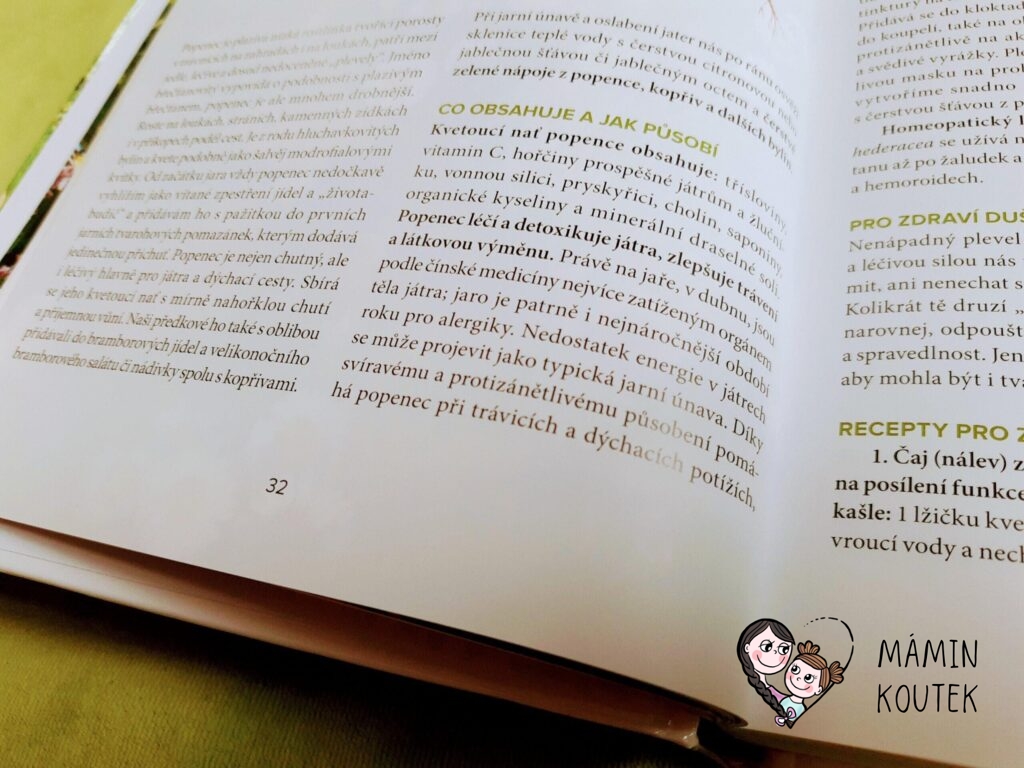 Popenec je plazivá nízká rostlinka tvořící porosty
v trávnících na zahradách i na loukách, patří mezi
jedlé, léčivé a dosoč nedoceněné „plevely“. Jméno
břečťanovitý vypovídá o podobnosti s plazivým
břečťanem, popenec je ale mnohem drobnější.
Roste na loukách, stráních, kamenných zídkách
i v příkopech podél cest. Je z rodu hluchavkovitých
bylin a kvete podobně jako šalvěj modrofialovými
kvítky. Od začátku jara vždy popenec nedočkavě
vyhlížím jako vítané zpestření jídel a „života-
budič“ a přidávám ho s pažitkou do prvních
jarních tvarohových pomazánek, kterým dodává
jedinečnou příchuť. Popenec je nejen chutný, ale
i léčivý hlavně pro játra a dýchací cesty. Sbírá
se jeho kvetoucí nať s mírně nahořklou chutí
a příjemnou vůní. Naši předkové ho také s oblibou
přidávali do bramborových jídel a velikonočního
bramborového salátu či nádivky spolu s kopřivami.
32
Při jarní únavě a oslabení jater nás po ránu
sklenice teplé vody s čerstvou citronovou nebo
jablečnou šťávou či jablečným octem a čerstvé
zelené nápoje z popence, kopřiv a dalších bylin.
CO OBSAHUJE A JAK PŮSOBÍ
Kvetoucí nať popence obsahuje: třísloviny,
vitamin C, hořčiny prospěšné játrům a žluční-
ku, vonnou silici, pryskyřici, cholin, saponiny,
organické kyseliny a minerální draselné soli.
Popenec léčí a detoxikuje játra, zlepšuje trávení
a látkovou výměnu. Právě na jaře, v dubnu, jsou
podle čínské medicíny nejvíce zatíženým orgánem
těla játra; jaro je patrně i nejnáročnější období
roku pro alergiky. Nedostatek energie v játrech
se může projevit jako typická jarní únava. Díky
svíravému a protizánětlivému působení pomá-
há popenec při trávicích a dýchacích potížích,
tinktury na
Přidává se do kloktad
do koupelí, také na ob
protizánětlivě na ak
a svědivé vyrážky. Ple
livou masku na prob
vytvoříme snadno
s čerstvou šťávou z p
Homeopatický l
hederacea se užívá n
tanu až po žaludek a
a hemoroidech.
PRO ZDRAVÍ DUŠ
Nenápadný plevel
a léčivou silou nás
mit, ani nenechat s
Kolikrát tě druzí „
narovnej, odpoušt
a spravedlnost. Jen
aby mohla být i tva
RECEPTY PRO Z
1. Čaj (nálev) z
na posílení funkce
kašle: 1 lžičku kve
vroucí vody a nech
MÁMIN
KOUTEK